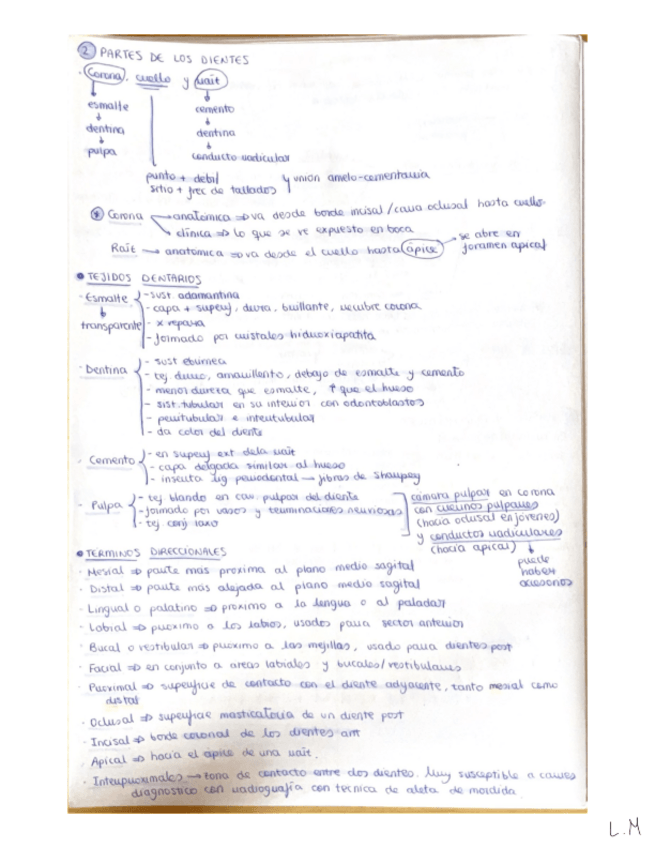 2 PARTES DE LOS DIENTES
- Corona, cuello y raíz
esmalte cemento
dentina dentina
pulpa conducto radicular
punto + debil y union amelo-cementaria
sitio + frec de tallados
* Corona → anatomica ⇒ va desde borde incisal/cara oclusal hasta cuello
→ clínica ⇒ lo que se ve expuesto en boca
Raíz → anatomica ⇒ va desde el cuello hasta ápice → se abre en
foramen apical
• TEJIDOS DENTARIOS
- Esmalte - sust. adamantina
- capa + superf, dura, brillante, recubre corona
transparente - x repara
- formado por cristales hidroxiapatita
- Dentina - sust eburnea
- tej duro, amarillento, debajo de esmalte y cemento
- menor dureza que esmalte, ↑ que el hueso
- sist. tubular en su interior con odontoblastos
- peritubular e intertubular
- da color del diente
- Cemento - en superf ext de la raíz
- capa delgada similar al hueso
- inserta lig periodontal → fibras de Sharpey
- Pulpa - tej blando en cav pulpar del diente
- formado por vasos y terminaciones nerviosas
- tej conj laxo
cámara pulpar en corona
con cuernos pulpares
(hacia oclusal en jóvenes)
y conductos radiculares
(hacia apical)
puede
haber
accesorios
• TERMINOS DIRECCIONALES
- Mesial ⇒ parte más proxima al plano medio sagital
- Distal ⇒ parte más alejada al plano medio sagital
- Lingual o palatino ⇒ proximo a la lengua o al paladar
- Labial ⇒ proximo a los labios, usados para sector anterior
- Bucal o vestibular ⇒ proximo a las mejillas, usado para dientes post
- Facial ⇒ en conjunto a areas labiales y bucales/vestibulares
- Proximal ⇒ superficie de contacto con el diente adyacente, tanto mesial como
distal
- Oclusal ⇒ superficie masticatoria de un diente post
- Incisal ⇒ borde coronal de los dientes ant
Apical ⇒ hacia el ápice de una raíz.
- Interproximales → zona de contacto entre dos dientes. Muy susceptible a caries
diagnostico con radiografía con tecnica de aleta de mordida
L.M